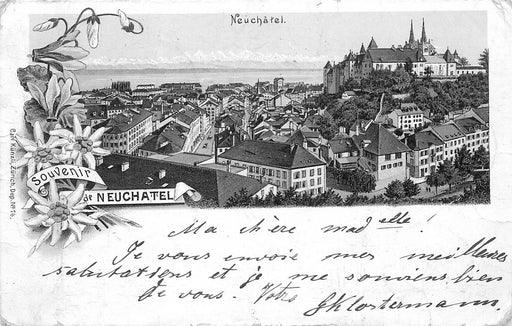 Neuchâtel.
Souvenir
de NEUCHATEL
Ma chère mad elle !
Je vous envoie mes meilleures
salutations et je me souviens bien
de vous. Votre
GKlostermann.